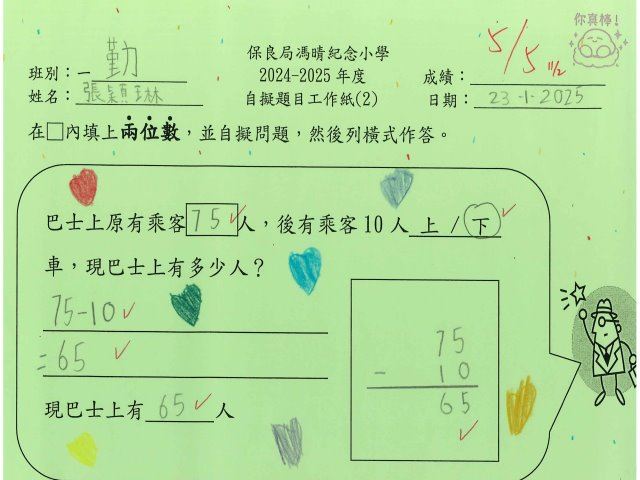 你真棒!
保良局馮晴紀念小學
班別：一勤
2024-2025 年度
成績：5/5 11/2
姓名：張穎琳
自擬題目工作紙(2)
日期：23-1-2025
在□內填上兩位數，並自擬問題，然後列橫式作答。
巴士上原有乘客75人，後有乘客10人 上 / 下
車，現巴士上有多少人？
75-10
=65
75
- 10
65
現巴士上有65人